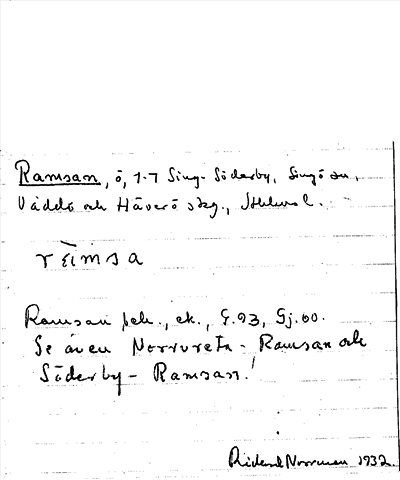 Ramsan, ö, 1-7 Sing-Söderby, Singö sn,
Väddö och Häverö skg., Sthlms l.
rämsa
Ramsan pek., ek., G.93, Gj.00.
Se även Norrveta-Ramsan och
Söderby-Ramsan.
Rickard Norrman 1932.